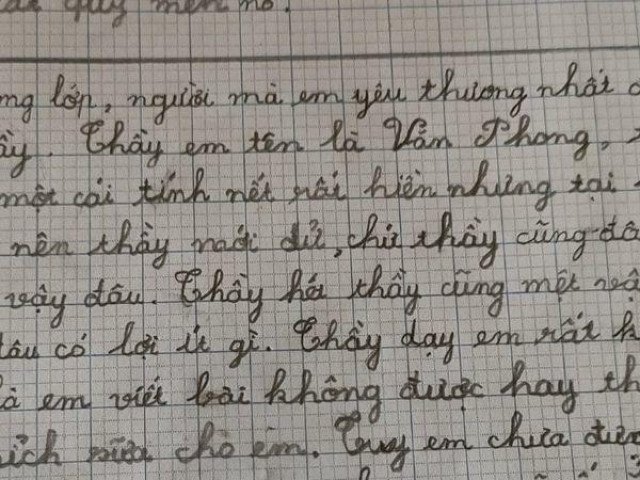 quý mến nó.
ng lớp, người mà em yêu thương nhất
ầy. Thầy em tên là Văn Phong,
một cái tính nết rất hiền nhưng tại
nên thầy mới dữ, chứ thầy cũng đâ
vậy đâu. Thầy la thầy cũng mệt
đâu có lợi ít gì. Thầy dạy em rất h
à em viết bài không được hay th
ích nữa cho em. Tuy em chưa đượ